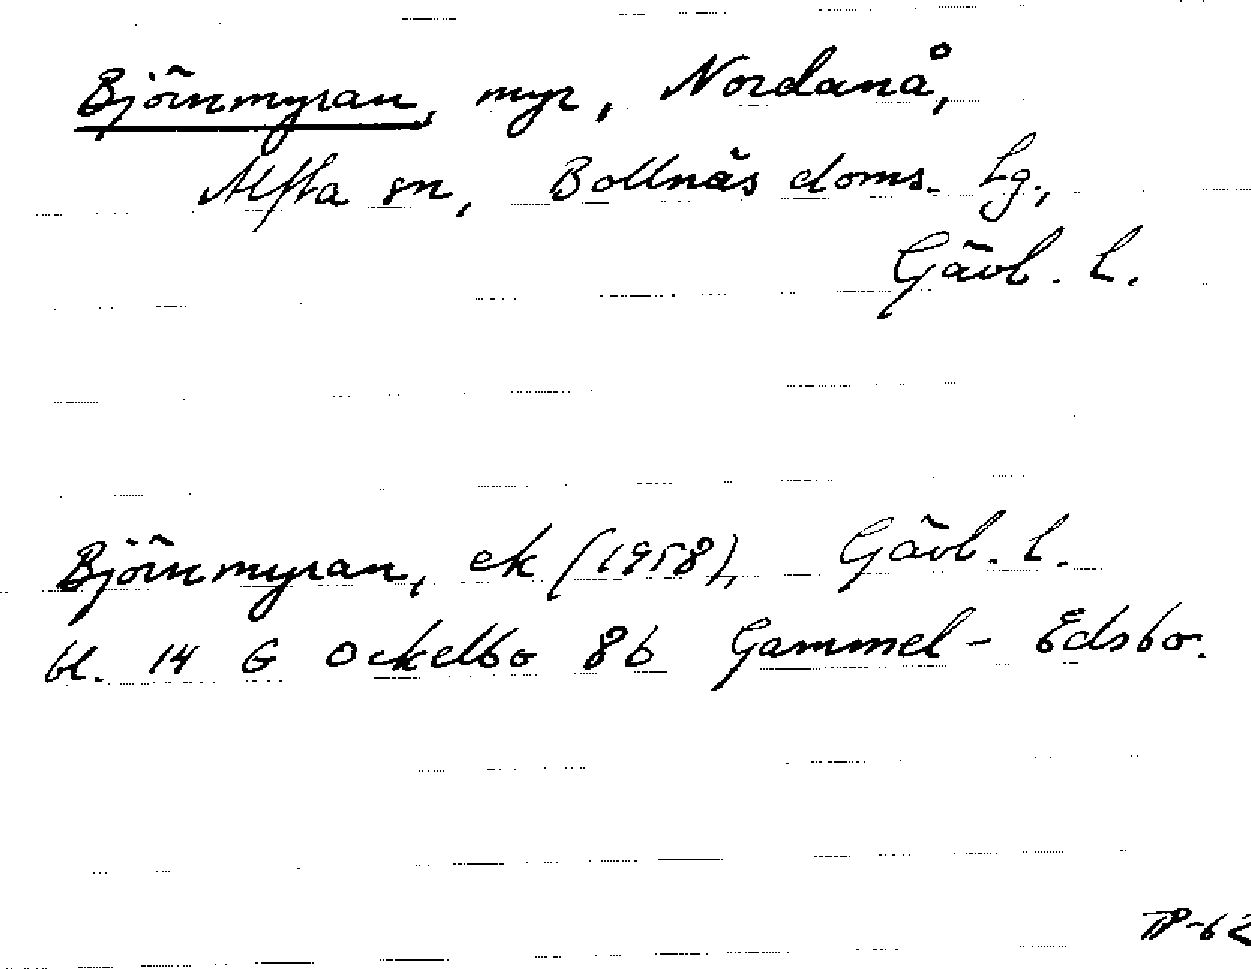 Björnmyran, myr, Nordanå,
Alfta sn, Bollnäs doms. Lg.,
Gävl. L.
Björnmyran, ek (1958), Gävl. l.
bl. 14 G Ockelbo 8b Gammel-Edsbo.
TP-62